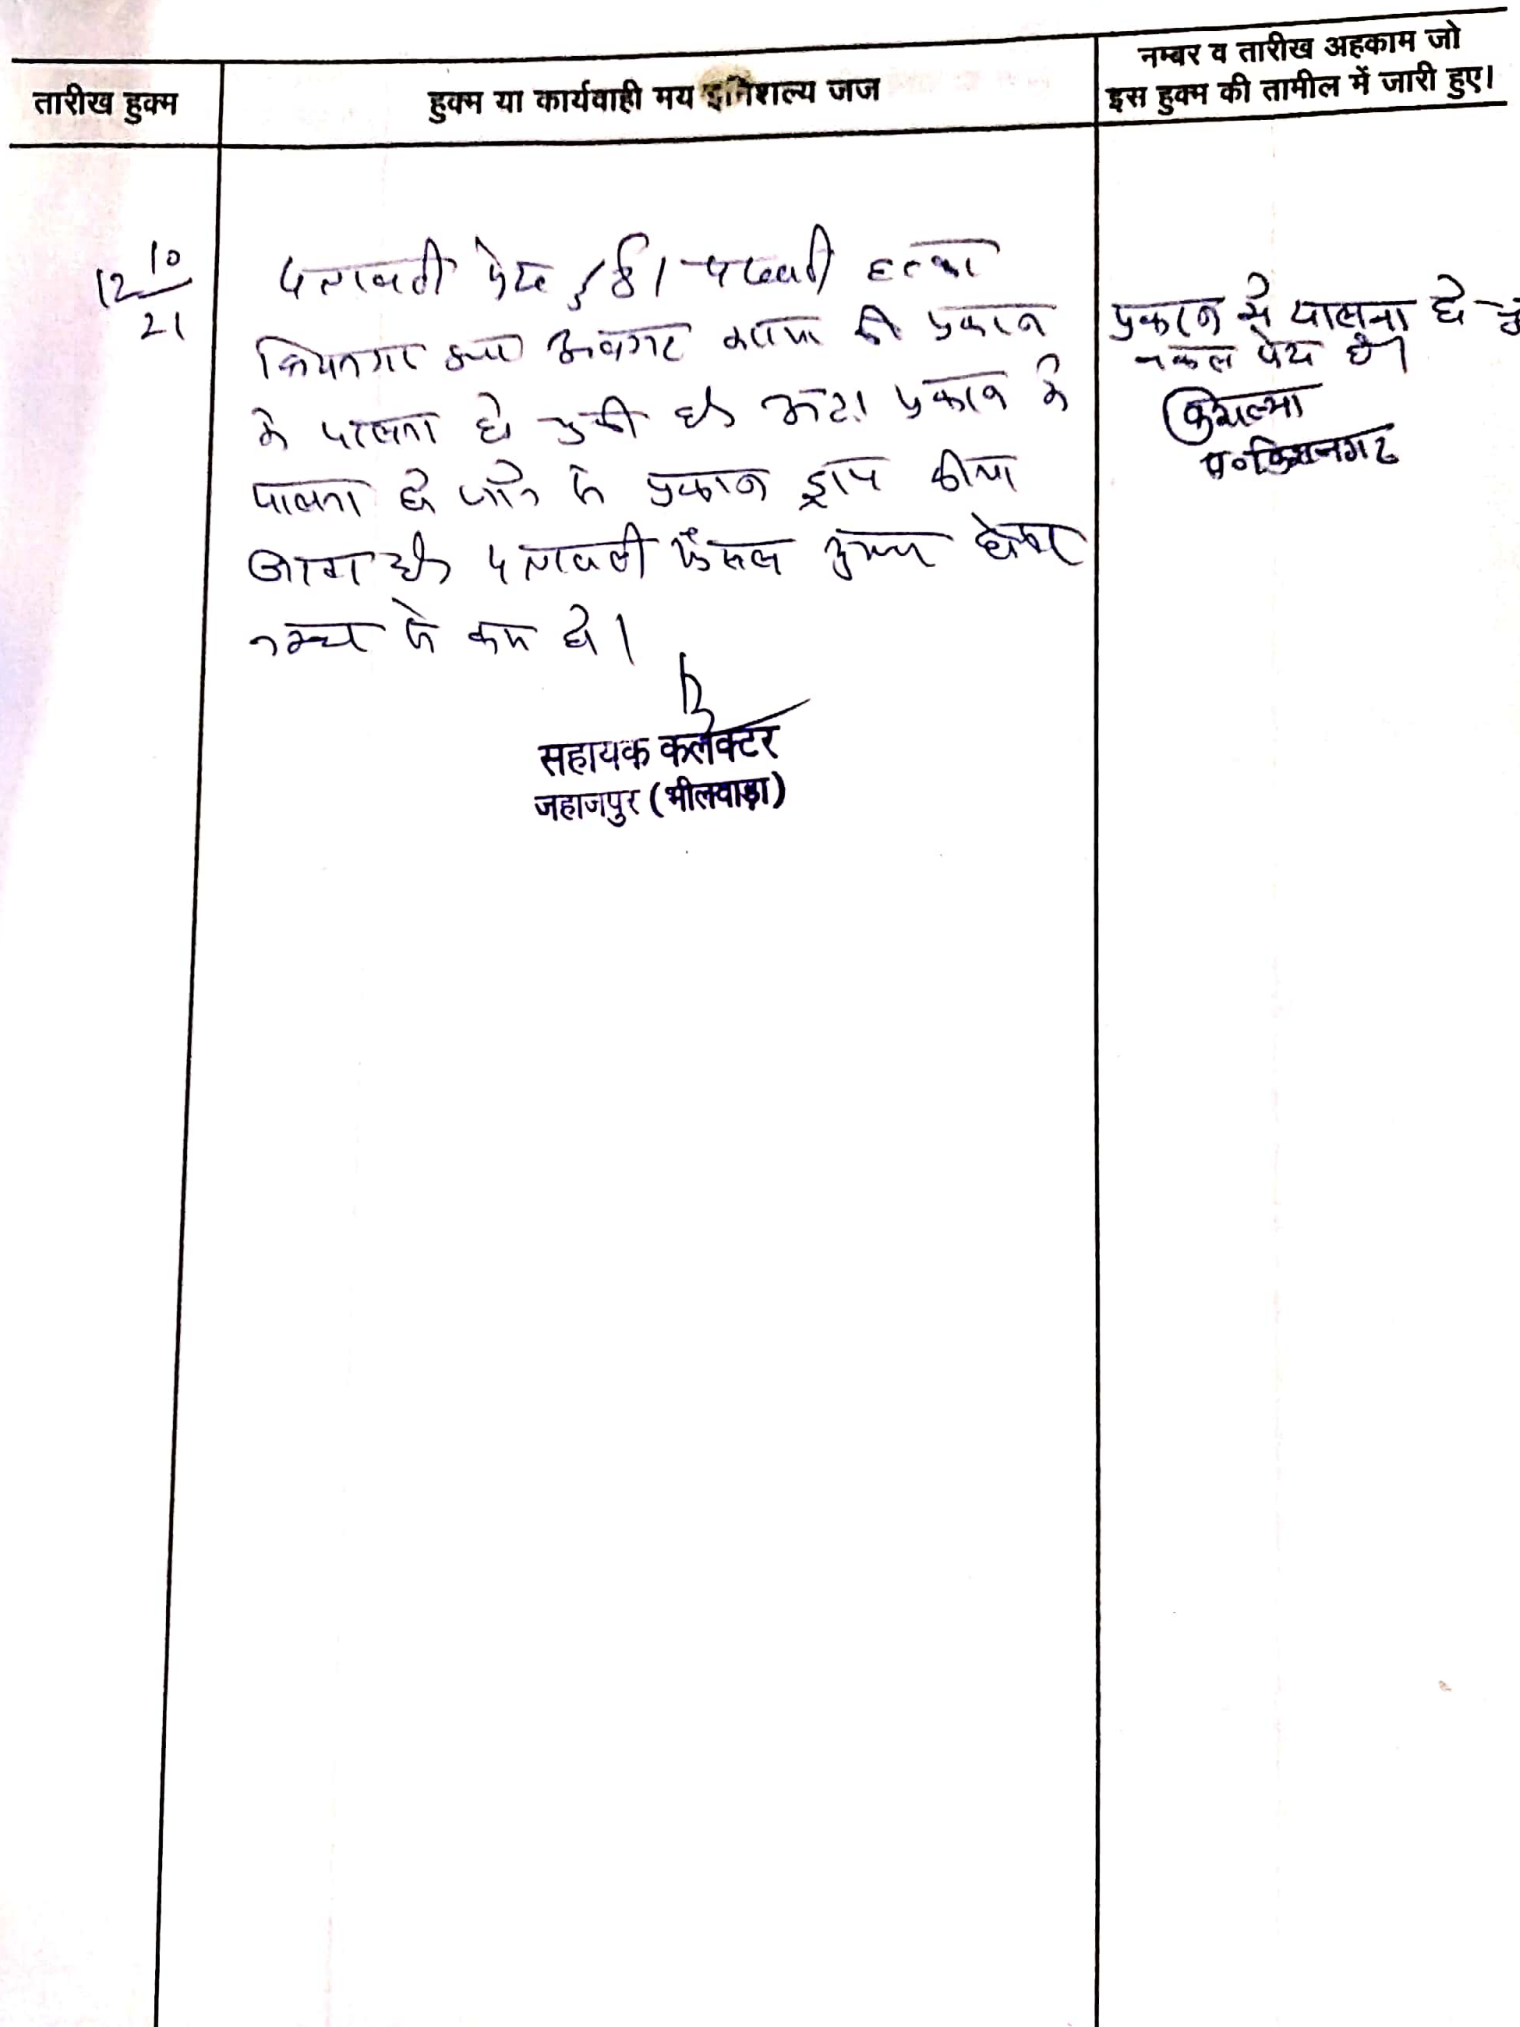 तारीख हुक्म
हुक्म या कार्यवाही मय इनिशल्य जज
नम्बर व तारीख अहकाम जो
इस हुक्म की तामील में जारी हुए।
12 10/21
पत्रावली पेश हुई। पटवारी हल्का
किशनगढ द्वारा अवगत कराया की प्रकरण
मे पालना हो चुकी है अतः प्रकरण मे
पालना हो जाने से प्रकरण ड्राप कीया
जाता है पत्रावली फैसल शुमार होकर
नम्बर से कम हो।
सहायक कलेक्टर
जहाजपुर (भीलवाड़ा)
प्रकरण में पालना हो
नकल पेश है।
प॰ किशनगढ